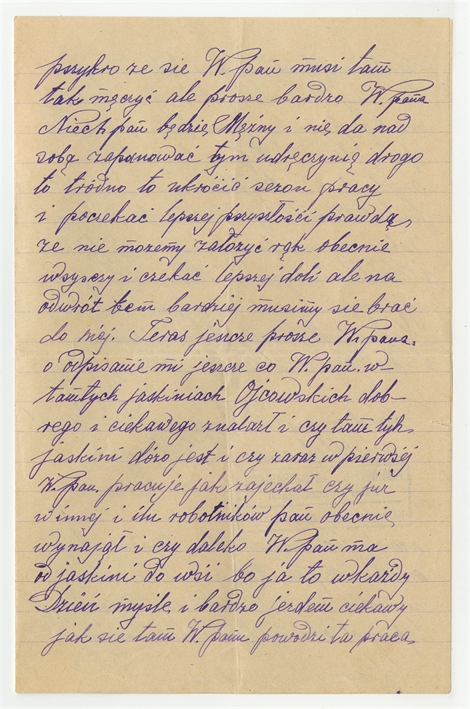 pszykro ze sie W. pań musi tam
tak męczyć ale prosze bardzo W. pana
Niech pań będzię Mężny i nię da nad
sobę zapanować tym udręczynię drogo
to tródno to ukrócić sezon pracy
i poczekać lepszej pszyszłości prawdą,
że nie możemy założyć rąk obecnie
wsyscy i czekać lepszej doli ale na
odwrót tem bardziej musimy się brać
do niej. Teras jeszcze prosze W. pana.
o odpisanie mi jeszcze co W. pań. w-
tamtych jaskiniach Ojcowskich dob-
rego i ciekawego znalazł i czy tam tyh
jaskini dózo jest i czy zaraz w pierwśéj
W. pan. pracuje jak zajechał czy już
w innéj i ilu robotników pań obecnie
wynajął i czy daleko W. Pań ma
od jaskini do wśi bo ja to wkażdy
Dzień myśle i bardzo jezdem ciekawy
jak sie tam W. pann powodzi ta praca